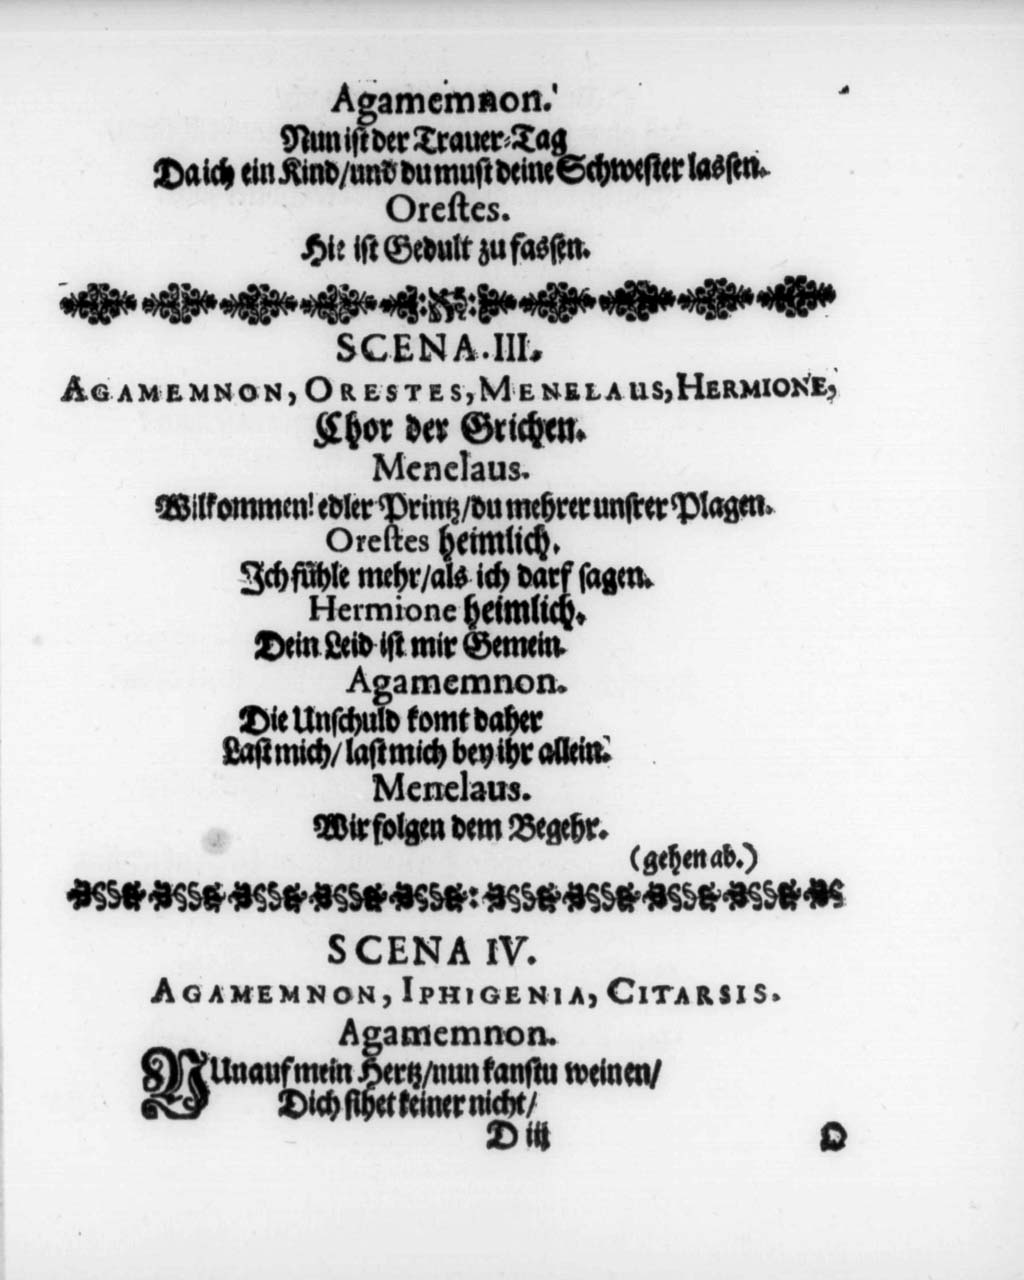 Agamemnon.
Nun ist der Trauer-Tag
Da ich ein Kind/und du must deine Schwester lassen.
Orestes.
Hie ist Gedult zu fassen.
SCENA.III.
AGAMEMNON, ORESTES, MENELAUS, HERMIONE,
Chor der Grichen.
Menelaus.
Wilkommen! edler Printz/du mehrer unsrer Plagen.
Orestes heimlich.
Ich fühle mehr/als ich darf sagen.
Hermione heimlich.
Dein Leid ist mir Gemein.
Agamemnon.
Die Unschuld komt daher
Last mich/ last mich bey ihr allein.
Menelaus.
Wir folgen dem Begehr.
(gehen ab.)
SCENA IV.
AGAMEMNON, IPHIGENIA, CITARSIS.
Agamemnon.
NUn auf mein Hertz/nun kanstu weinen/
Dich sihet keiner nicht/
D iij D